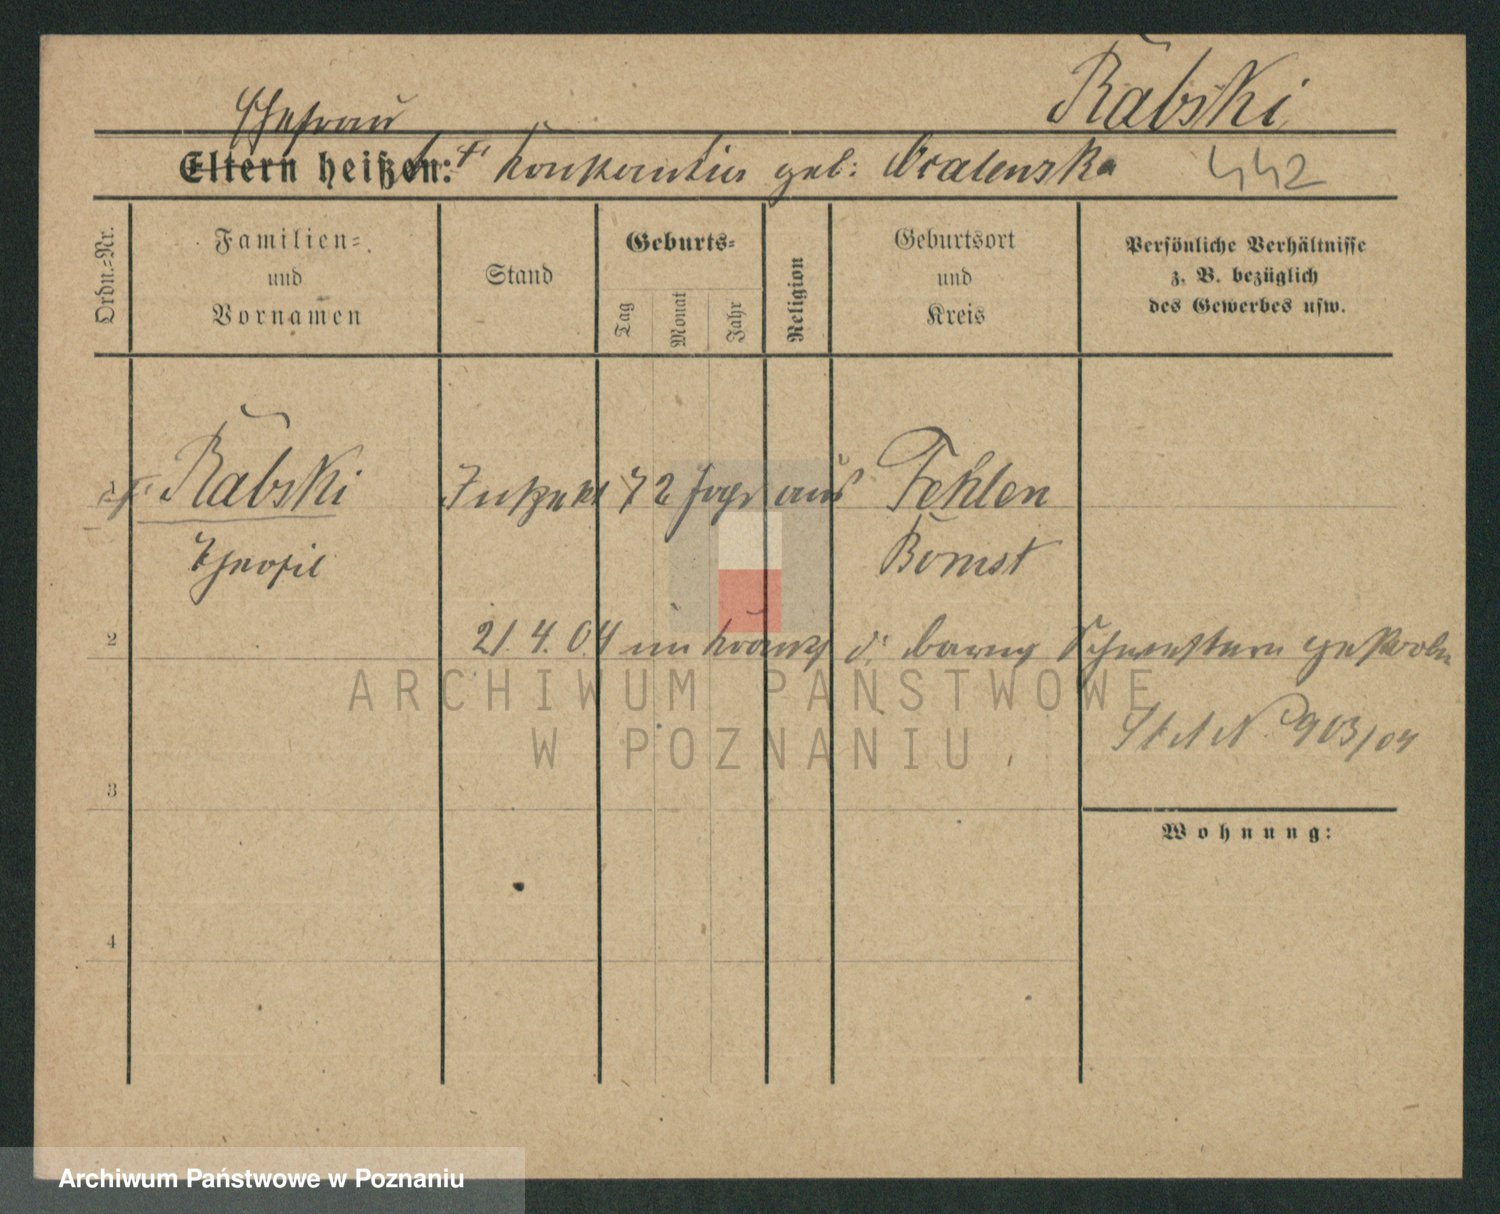 Rabski
Ehefrau
Eltern heißen: Konstantia geb: Oralenska 442
Ordn.-Nr.
Familien-
und
Vornamen
Stand
Geburts-
Tag
Monat
Jahr
Religion
Geburtsort
und
Kreis
Persönliche Verhältnisse
z. B. bezüglich
des Gewerbes usw.
Rabski 72 Jahr aus Fehlen
Theofil Bomst
2 21. 4. 04 im d. barmh Schwestern gestorben
St A N. 903/04
3
Wohnung:
4
ARCHIWUM PAŃSTWOWE
W POZNANIU
Archiwum Państwowe w Poznaniu